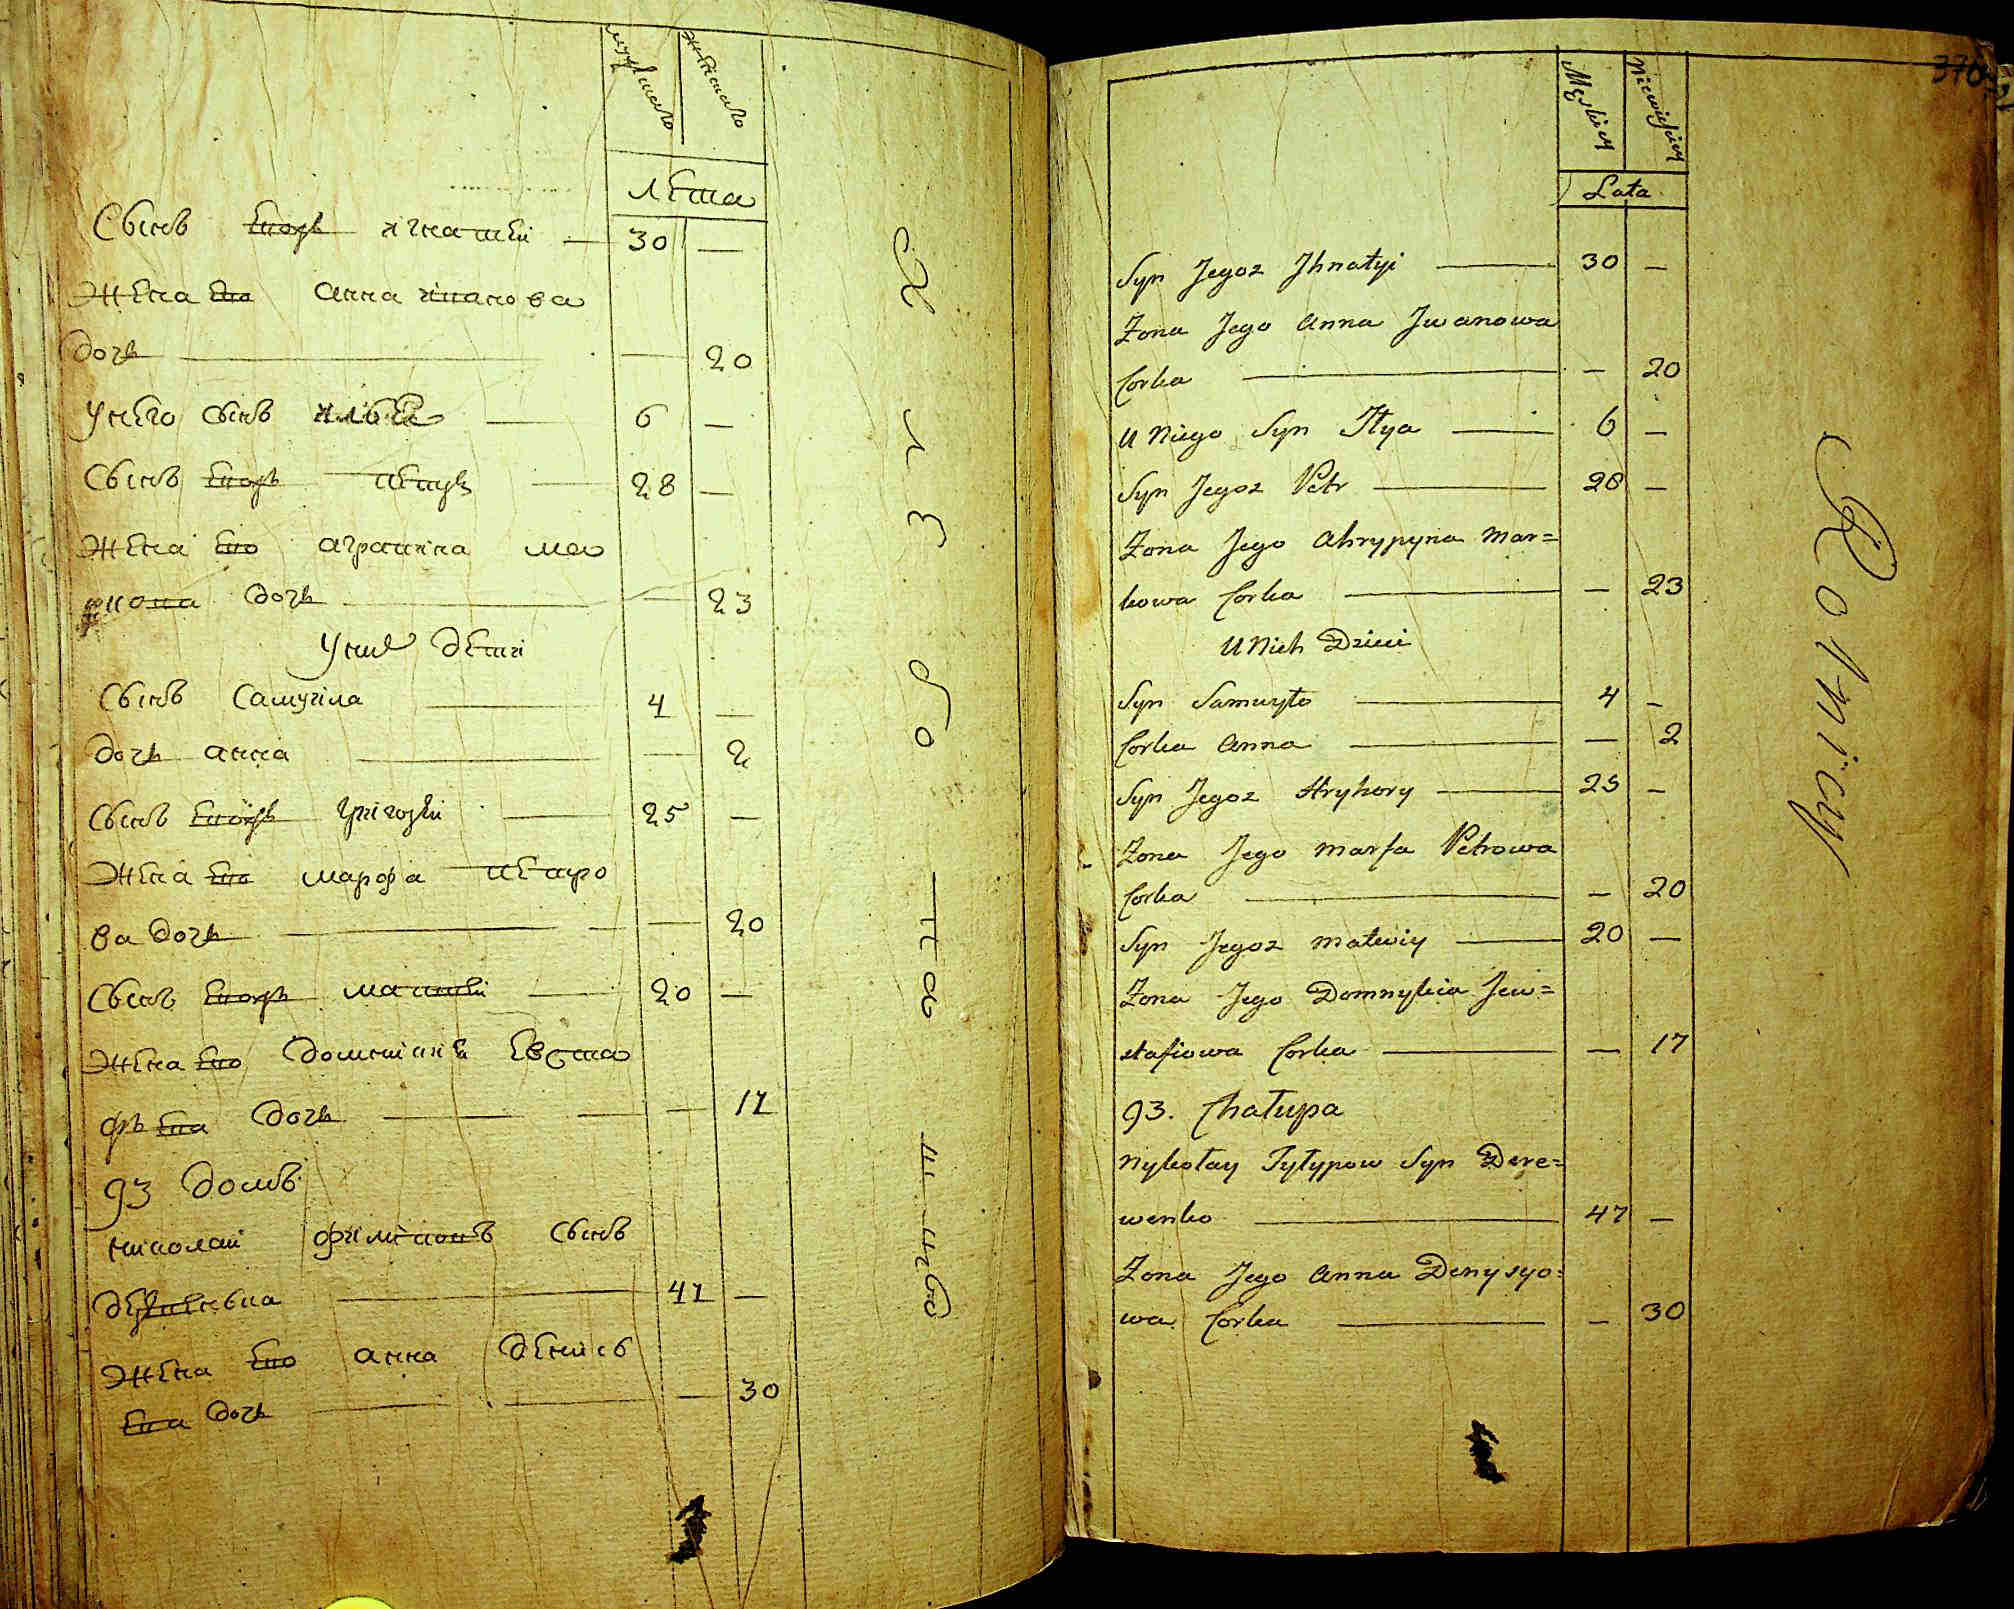 мужеска
женска
лета
Сынъ Егожъ игнатей — 30 —
Жена Его анна иванова
дочь — — 20
У него сынъ илья — 6 —
Сынъ Егожъ петръ — 28 —
Жена Его аграпина мар
кова дочь — — 23
У них дети
Сынъ Самуила — 4 —
дочь анна — — 2
Сынъ Егожъ григорей — 25 —
Жена Его марфа петро
ва дочь — — 20
Сынъ Егожъ матвей — 20 —
Жена Его Евста
фъева дочь — — 17
93 домъ
николай филиповъ сынъ
— 47 —
Жена Его анна денисъ
ева дочь — — 30
Хлзобопашцы
370
Męskiey
Niewieściey
Lata
Syn Jegoż Jhnatyi — 30 —
Żona Jego Anna Jwanowa
Corka — — 20
U Niego Syn Jlya — 6 —
Syn Jegoż Petr — 28 —
Żona Jego Ahrypyna Mar=
kowa Corka — — 23
U Nich Dzieci
Syn Samuyło — 4 —
Corka Anna — — 2
Syn Jegoż Hryhory — 25 —
Żona Jego Marfa Petrowa
Corka — — 20
Syn Jegoż Matwiy — 20 —
Żona Jego Domnykia Jew=
stafiowa Corka — — 17
93. Chałupa
Nykołay Fyłypow Syn Dere=
wenko — 47 —
Żona Jego Anna Denysyo=
wa Corka — — 30
Rolnicy